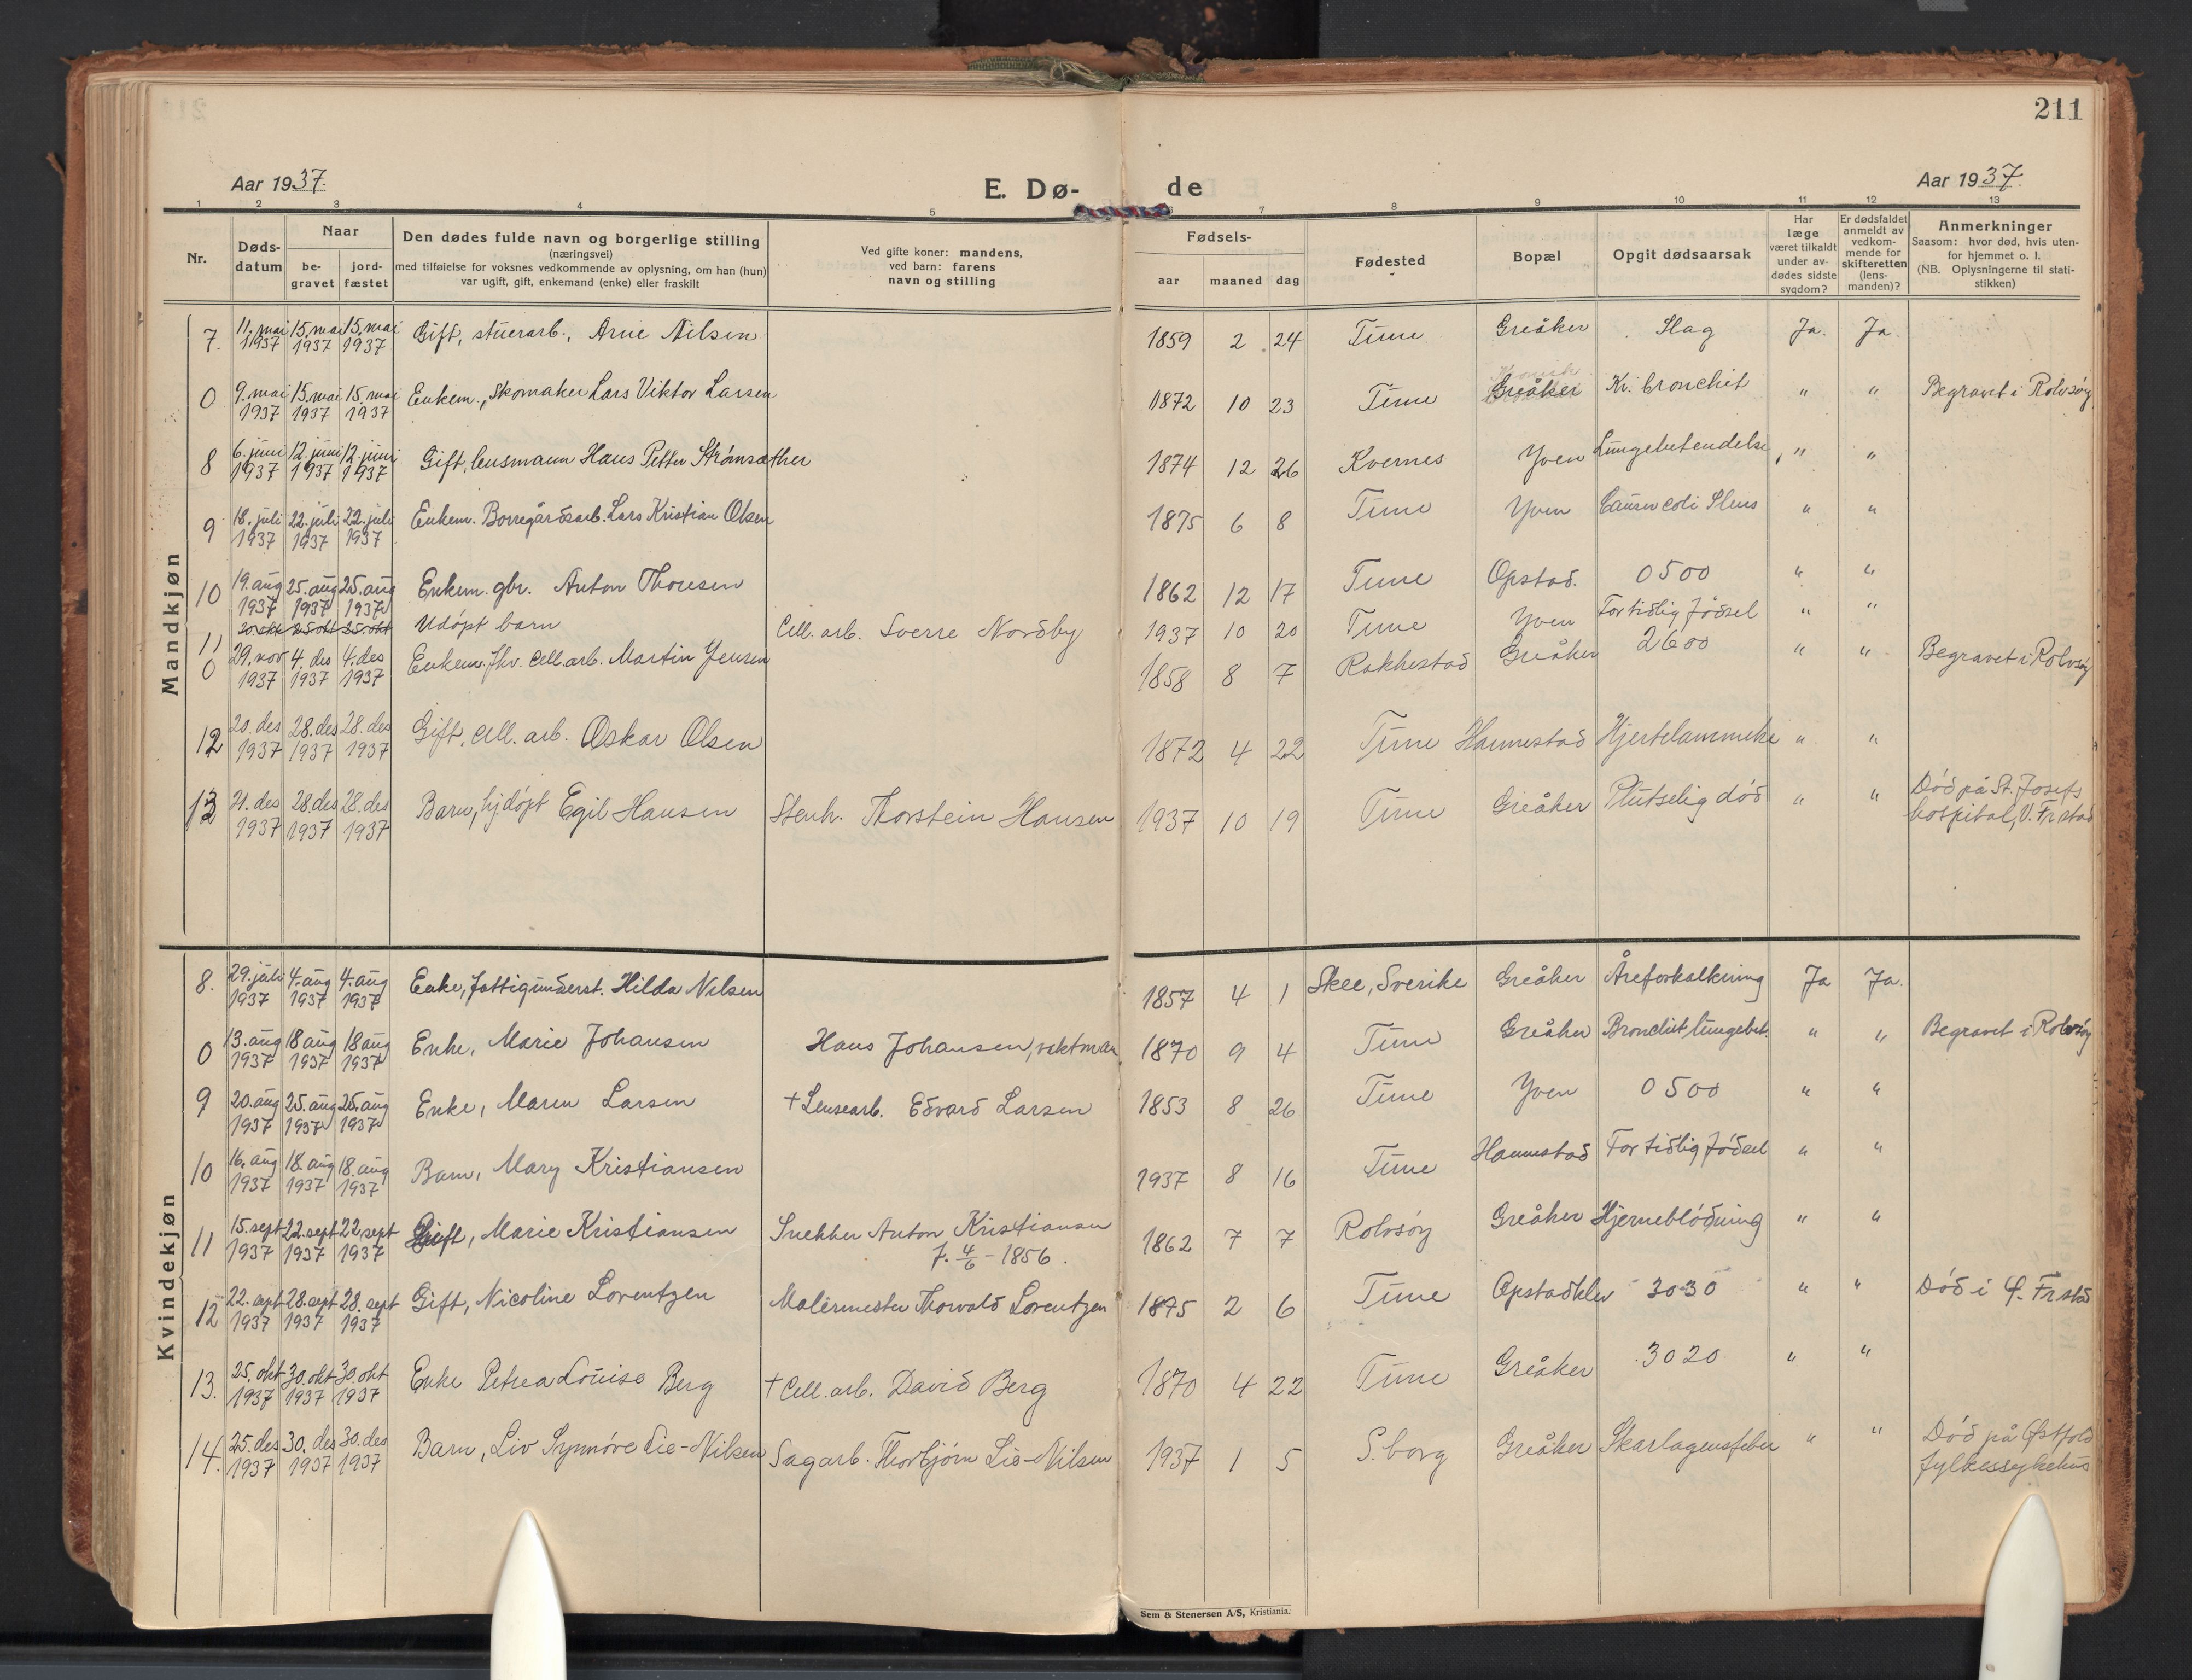 211
Aar 1937.
E. Dø-
de
Aar 1937.
1 2 3 4 5 7 8 9 10 11 12 13
Nr.
Døds-
datum
Naar
be-
gravet
jord-
fæstet
Den dødes fulde navn og borgerlige stilling
(næringsvei)
med tilføielse for voksnes vedkommende av oplysning, om han (hun)
var ugift, gift, enkemand (enke) eller fraskilt
Ved gifte koner: mandens,
ved barn: farens
navn og stilling
Fødsels-
aar maaned dag
Fødested
Bopæl
Opgit dødsaarsak
Har
læge
været tilkaldt
under av-
dødes sidste
sygdom?
Er dødsfaldet
anmeldt av
vedkom-
mende for
skifteretten
(lens-
manden)?
Anmerkninger
Saasom: hvor død, hvis uten-
for hjemmet o. l.
(NB. Oplysningerne til stati-
stikken)
Mandkjøn
7. 11. mai 1937 15. mai 1937 15. mai 1937 Gift, stuerarb., Arne Nilsen 1859 2 24 Tune Greåker Slag Ja. Ja.
0 9. mai 1937 15. mai 1937 15. mai 1937 Enkem., Skomaker Lars Viktor Larsen 1872 10 23 Tune Greåker Kr. bronchit " " Begravet i Rolvsøy
8 6. juni 1937 12. juni 1937 12. juni 1937 Gift, lensmann Hans Petter Strømsæther 1874 12 26 Kvernes Yven Lungebetendelse " "
9 18. juli 1937 22. juli 1937 22. juli 1937 Enkem. Borregårdsarb. Lars Kristian Olsen 1875 6 8 Tune Yven coli " "
10 19. aug 1937 25. aug 1937 25. aug 1937 Enkem. gbr. Anton Thoresen 1862 12 17 Tune Opstad. 0500 " "
11 20. okt 25 okt 25. okt Udøpt barn Cell. arb. Sverre Nordby 1937 10 20 Tune Yven For tidlig fødsel " "
0 29. nov 1937 4. des 1937 4. des 1937 Enkem. fhv. cell.arb. Martin Jensen 1858 8 7 Rakkestad Greåker 2600 " " Begravet i Rolvsøy
12 20. des 1937 28. des 1937 28. des 1937 Gift, cell. arb. Oskar Olsen 1872 4 22 Tune Hannestad Hjertelammelse " "
13 21. des 1937 28 des 1937 28. des 1937 Barn, hj.døpt Egil Hansen Stenh. Thorstein Hansen 1937 10 19 Tune Greåker Plutselig død " " Død på St. Josefs
hospital, V. Fr.stad
Kvindekjøn
8. 29. juli 1937 4. aug 1937 4. aug 1937 Enke, fattigunderst. Hilda Nilsen 1857 4 1 Skee, Sverike Greåker Åreforkalkning Ja Ja.
0 13. aug 1937 18 aug 1937 18 aug 1937 Enke, Marie Johansen Hans Johansen, vaktman 1870 9 4 Tune Greåker Bronchit lungebet. " " Begravet i Rolvsøy
9 20. aug 1937 25. aug 1937 25. aug 1937 Enke, Maren Larsen + Lensearb. Edvard Larsen 1853 8 26 Tune Yven 0500 " "
10 16. aug 1937 18. aug 1937 18. aug 1937 Barn, Mary Kristiansen 1937 8 16 Tune Hannestad For tidlig fødsel " "
11 15. sept 1937 22. sept 1937 22. sept 1937 Gift, Marie Kristiansen Snekker Anton Kristiansen 1862 7 7 Rolvsøy Greåker Hjerneblødning " "
f. 4/6 - 1856.
12 22. sept 1937 28. sept 1937 28. sept 1937 Gift, Nicoline Lorentzen Malermester Thorvald Lorentzen 1875 2 6 Tune Opstadklev 3030 " " Død i Ø. Fr.stad
13. 25. okt 1937 30. okt 1937 30. okt 1937 Enke Petrea Louise Berg + Cell. arb. David Berg 1870 4 22 Tune Greåker 3020 " "
14. 25. des 1937 30. des 1937 30. des 1937 Barn, Liv Synnøve Lie-Nilsen Sagarb. Thorbjørn Lie-Nilsen 1937 1 5 S.borg Greåker Skarlagensfeber " " Død på Østfold
fylkessykehus
Sem & Stenersen A/S, Kristiania.